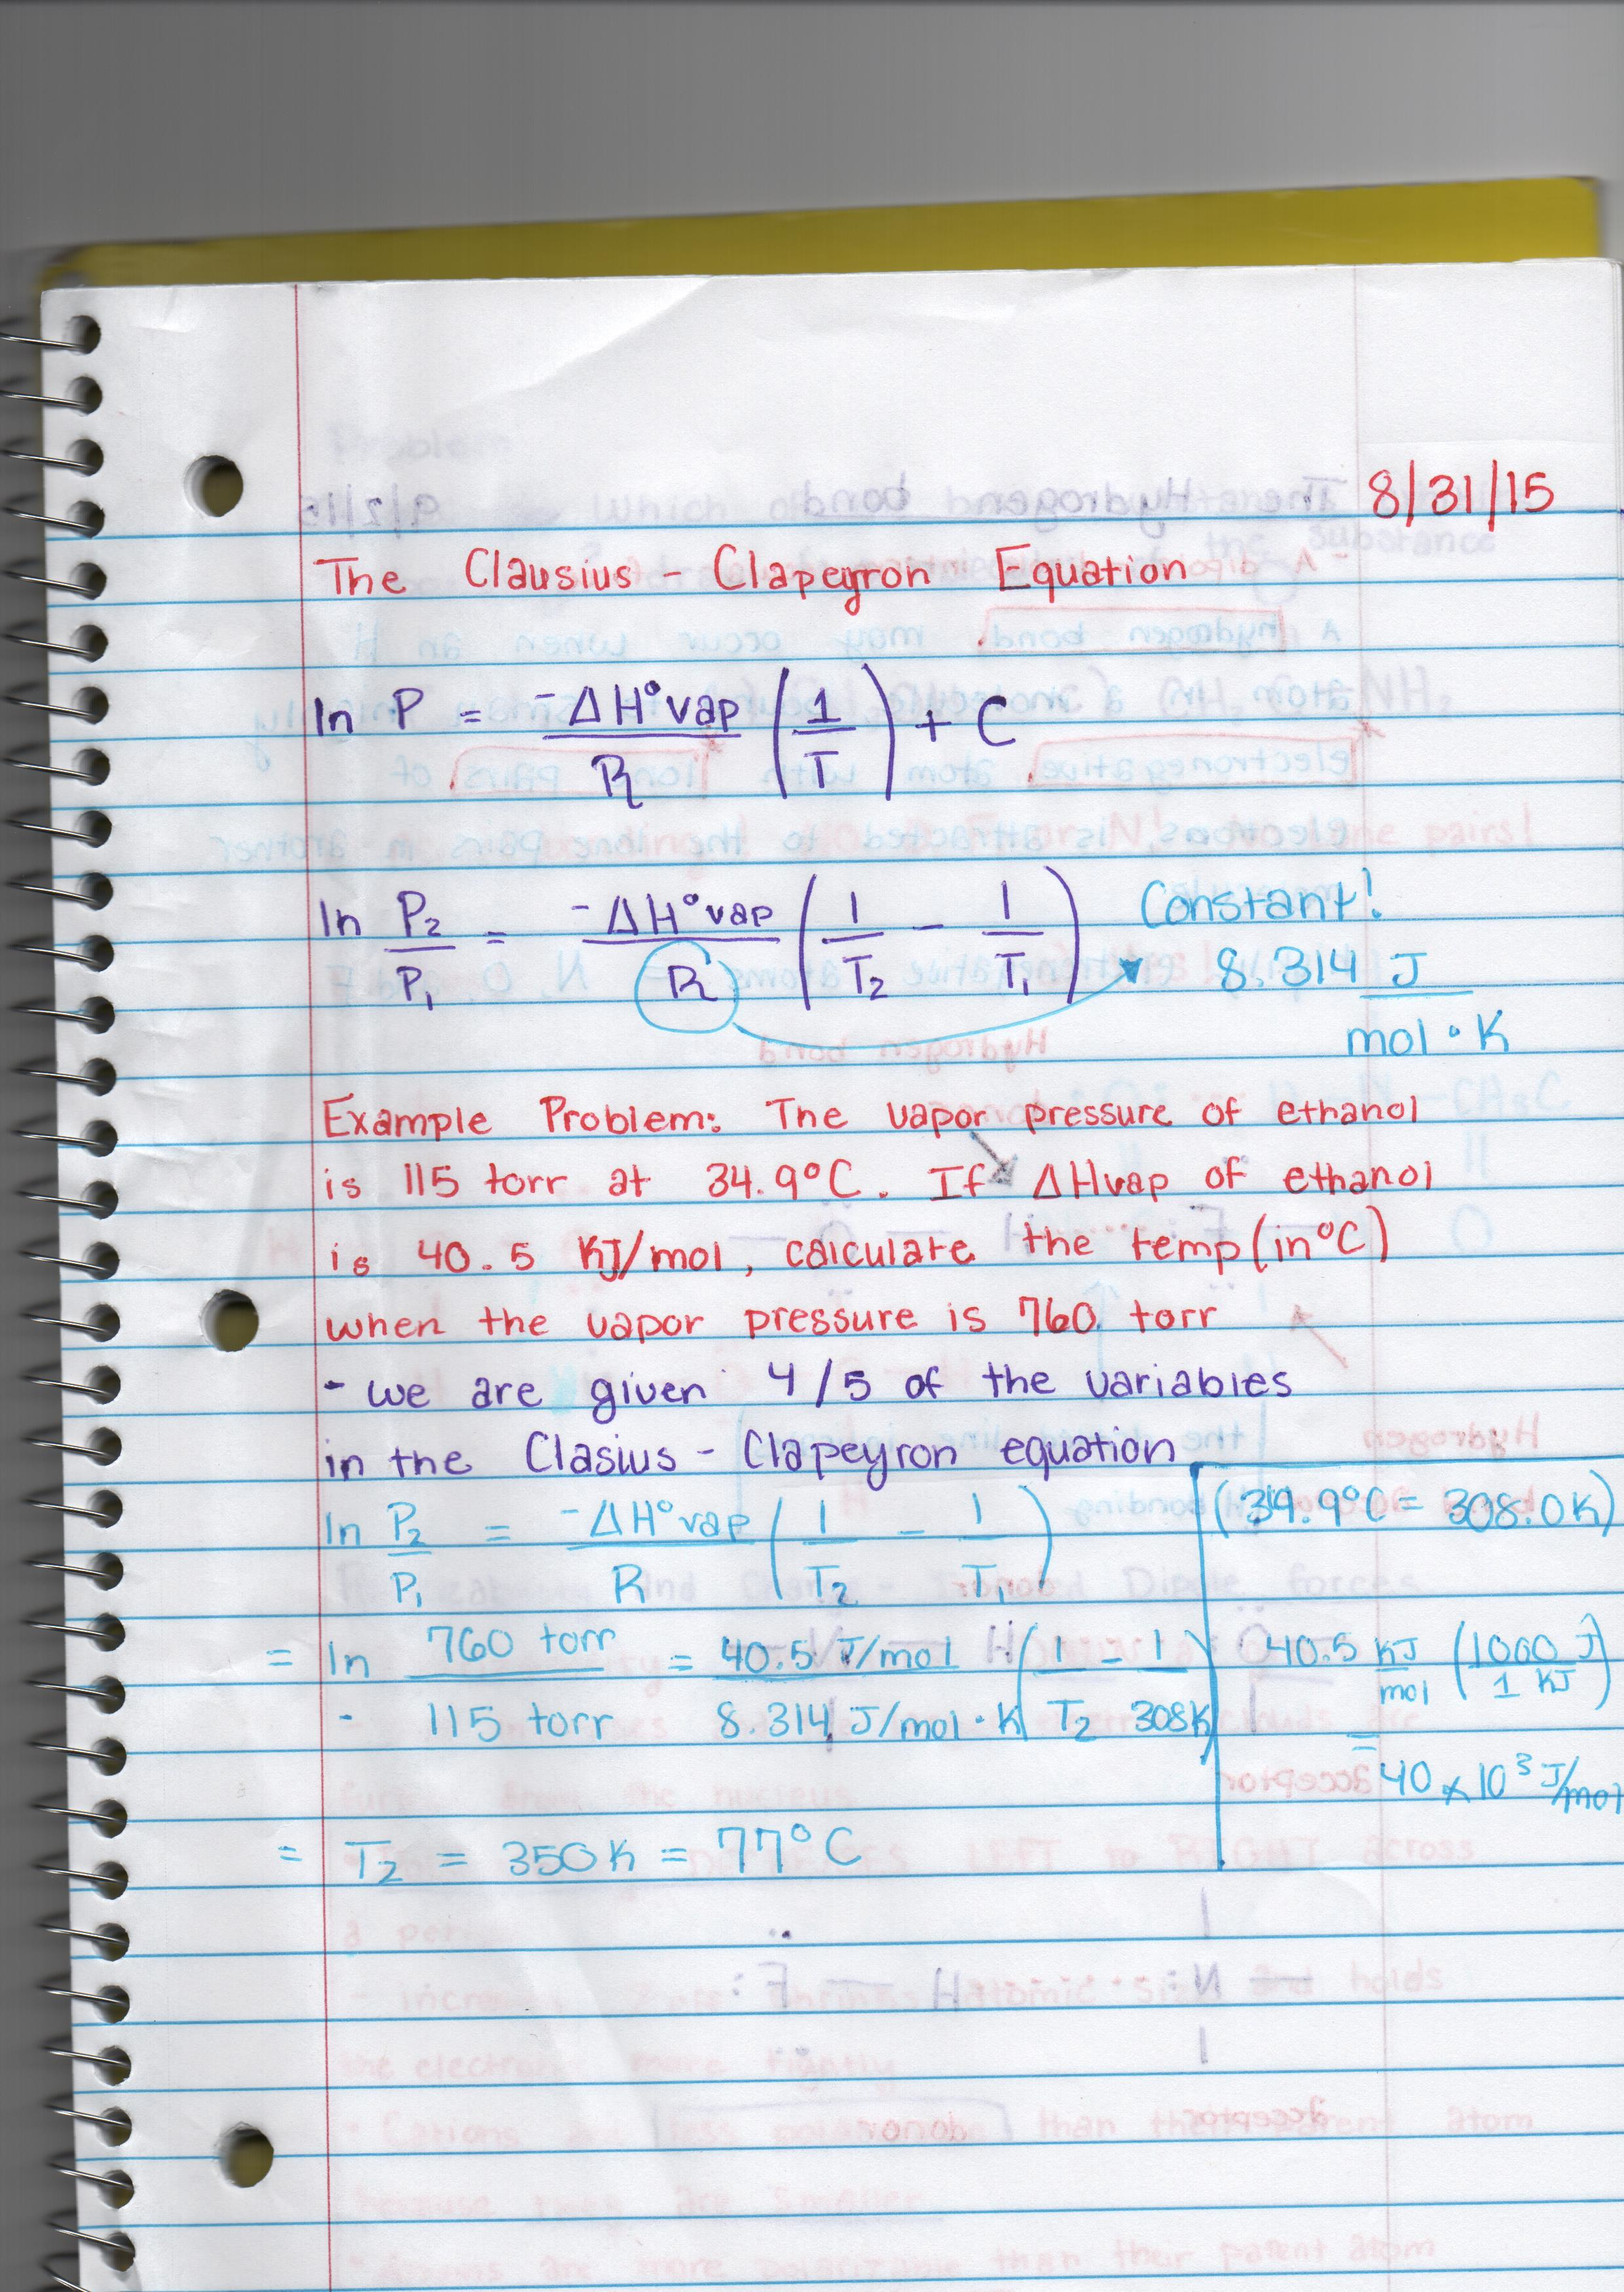 8/31/15
The Clausius - Clapeyron Equation
ln P = -ΔH°vap/R (1/T) + C
ln P₂/P₁ = -ΔH°vap/R (1/T₂ - 1/T₁) Constant! 8.314 J/mol·K
Example Problem: The vapor pressure of ethanol
is 115 torr at 34.9°C. If ΔHvap of ethanol
is 40.5 KJ/mol, calculate the temp (in°C)
when the vapor pressure is 760 torr
- we are given 4/5 of the variables
in the Clasius - Clapeyron equation
ln P₂/P₁ = -ΔH°vap/R (1/T₂ - 1/T₁)
= ln 760 torr / 115 torr = 40.5 J/mol / 8.314 J/mol·K (1/T₂ - 1/308K)
= T₂ = 350K = 77°C
(34.9°C = 308.0K)
40.5 KJ/mol (1000 J/1 KJ)
=
40 x 10³ J/mol